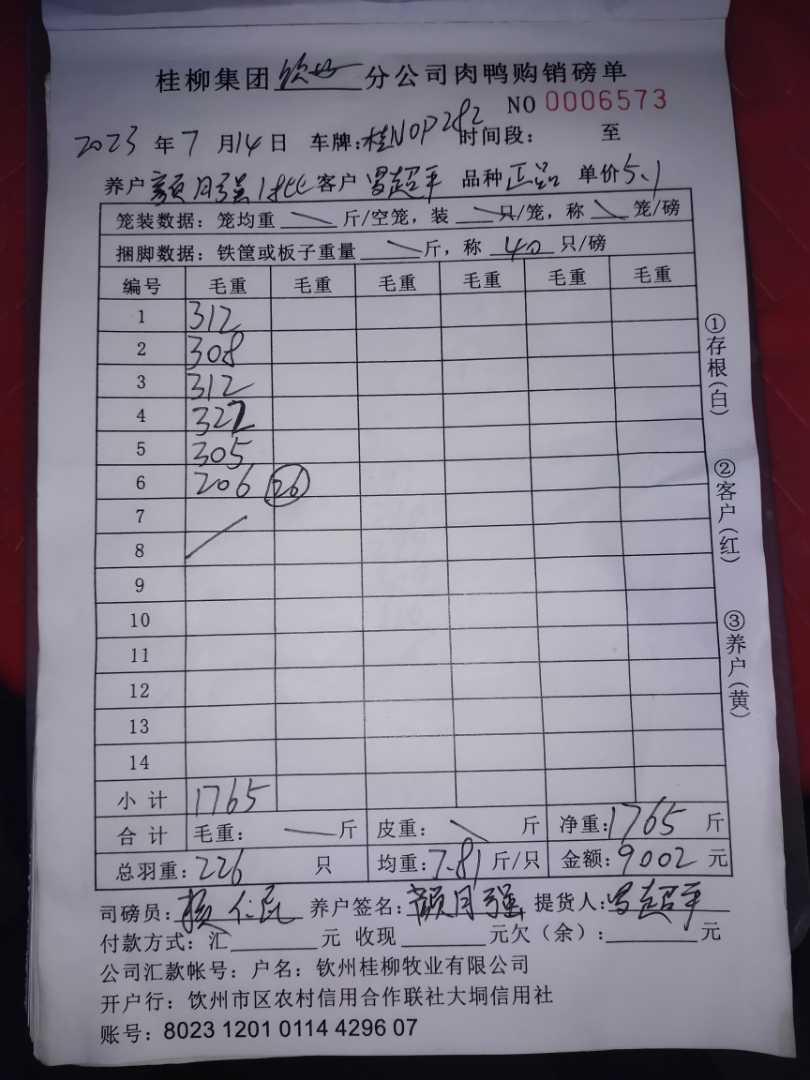 桂柳集团钦州分公司肉鸭购销磅单
NO 0006573
2023 年 7 月 14 日 车牌:桂N0P282 时间段: 至
养户 颜月强 1批 客户 罗超平 品种 正品 单价 5.1
笼装数据: 笼均重 \ 斤/空笼, 装 \ 只/笼, 称 \ 笼/磅
捆脚数据: 铁筐或板子重量 \ 斤, 称 40 只/磅
编号 毛重 毛重 毛重 毛重 毛重 毛重
1 312
2 308
3 312
4 322
5 305
6 206 26
7
8
9
10
11
12
13
14
小计 1765
合计 毛重: — 斤 皮重: \ 斤 净重: 1765 斤
总羽重: 226 只 均重: 7.81 斤/只 金额: 9002 元
司磅员: 养户签名: 颜月强 提货人: 罗超平
付款方式: 汇 元 收现 元欠(余): 元
公司汇款帐号: 户名: 钦州桂柳牧业有限公司
开户行: 钦州市区农村信用合作联社大垌信用社
账号: 8023 1201 0114 4296 07
①存根(白)
②客户(红)
③养户(黄)